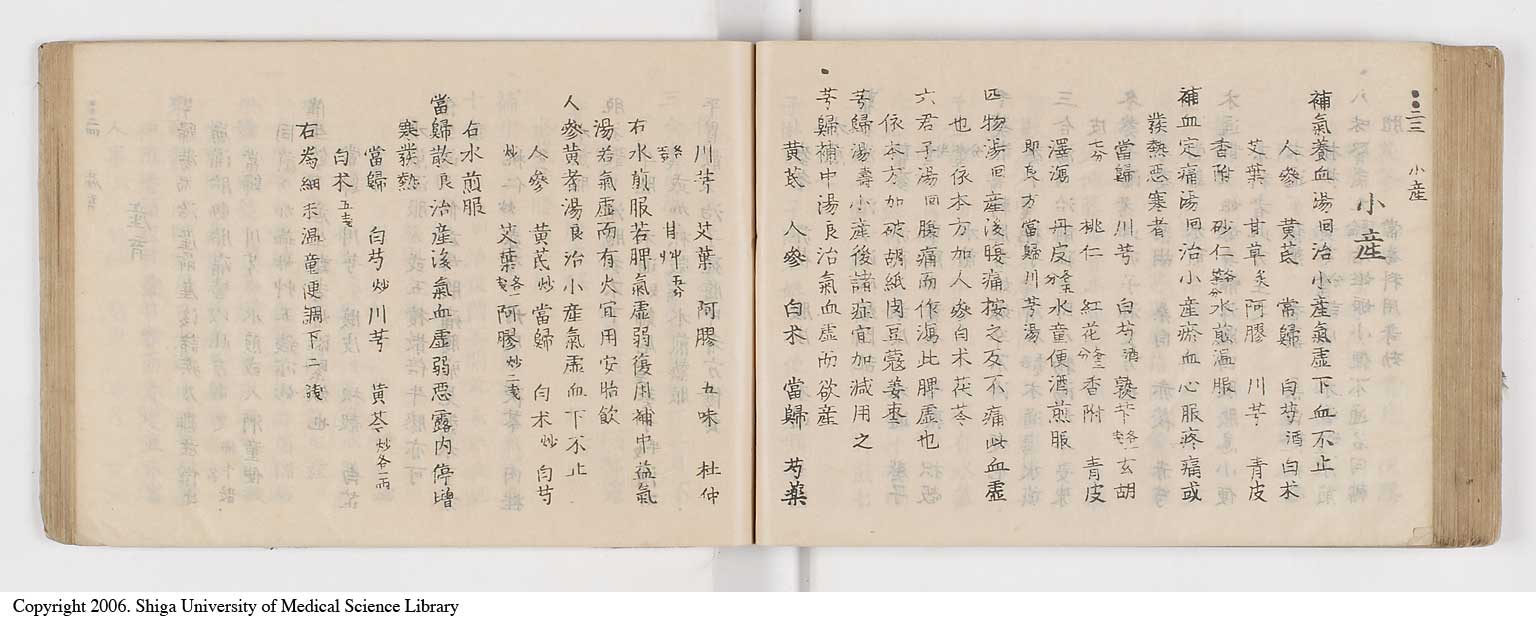 二三 小産
小産
補氣養血湯回治小產氣虛下血不止
人參 黃芪 當歸 白芍酒 白术
艾葉 甘草 阿膠 川芎 青皮
香附 砂仁 水煎温服
補血定痛湯回治小產瘀血心腹疼痛或
發熱惡寒者
當歸 川芎 白芍酒 熟芐各一 玄胡
七分 桃仁 紅花 香附 青皮
澤瀉 丹皮 水童便酒煎服
即良方當歸川芎湯
四物湯回產後腹痛按之反不痛此血虛
也依本方加人參白术茯苓
六君子湯回腹痛而作瀉此脾虛也
依本方加破胡紙肉豆蔻姜枣
芎歸湯壽小產後諸症宜加減用之
芎歸補中湯良治氣血虛而欲產
黃芪 人參 白术 當歸 芍藥
川芎 艾葉 阿膠 五味 杜仲
各 甘艸五分
右水煎服若脾氣虛弱復用補中益氣
湯若氣虛而有火宜用安胎飲
人參黃芪湯良治小產氣虛血下不止
人參 黃芪炒 當歸 白术炒 白芍
炒 艾葉各一 阿膠炒二戔
右水煎服
當歸散良治產後氣血虛弱惡露内停增
寒發熱
當歸 白芍炒 川芎 黃芩炒各一兩
白术五戔
右為細末温童便調下二錢
Copyright 2006. Shiga University of Medical Science Library